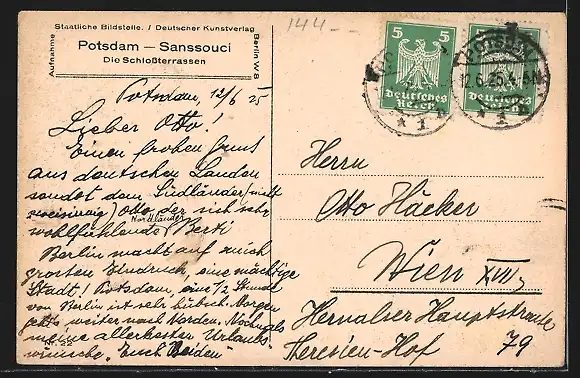 Staatliche Bildstelle. / Deutscher Kunstverlag
Aufnahme
Berlin W 8
Potsdam — Sanssouci
Die Schloßterrassen
144.-
5
5
Deutsches
Reich
Deutsches
POTSDAM
12.6.25.
* 1
* 1
Potsdam, 12/6 25
Lieber Otto!
Einen frohen Gruss
aus deutschen Landen
sendet dem Südländer
Otto der sich sehr
wohlfühlende Nordländer Berti
Berlin macht auf mich
grossen Eindruck, eine mächtige
Stadt, Potsdam, eine 1/2 Stunde
von Berlin ist sehr hübsch. Morgen
gehts weiter nach Norden. Nochmals
meine allerbesten Urlaubs-
wünsche. Euch Beiden
Herrn
Otto Häcker
Wien XVII
Hernalser Hauptstrasse
79
Theresien-Hof